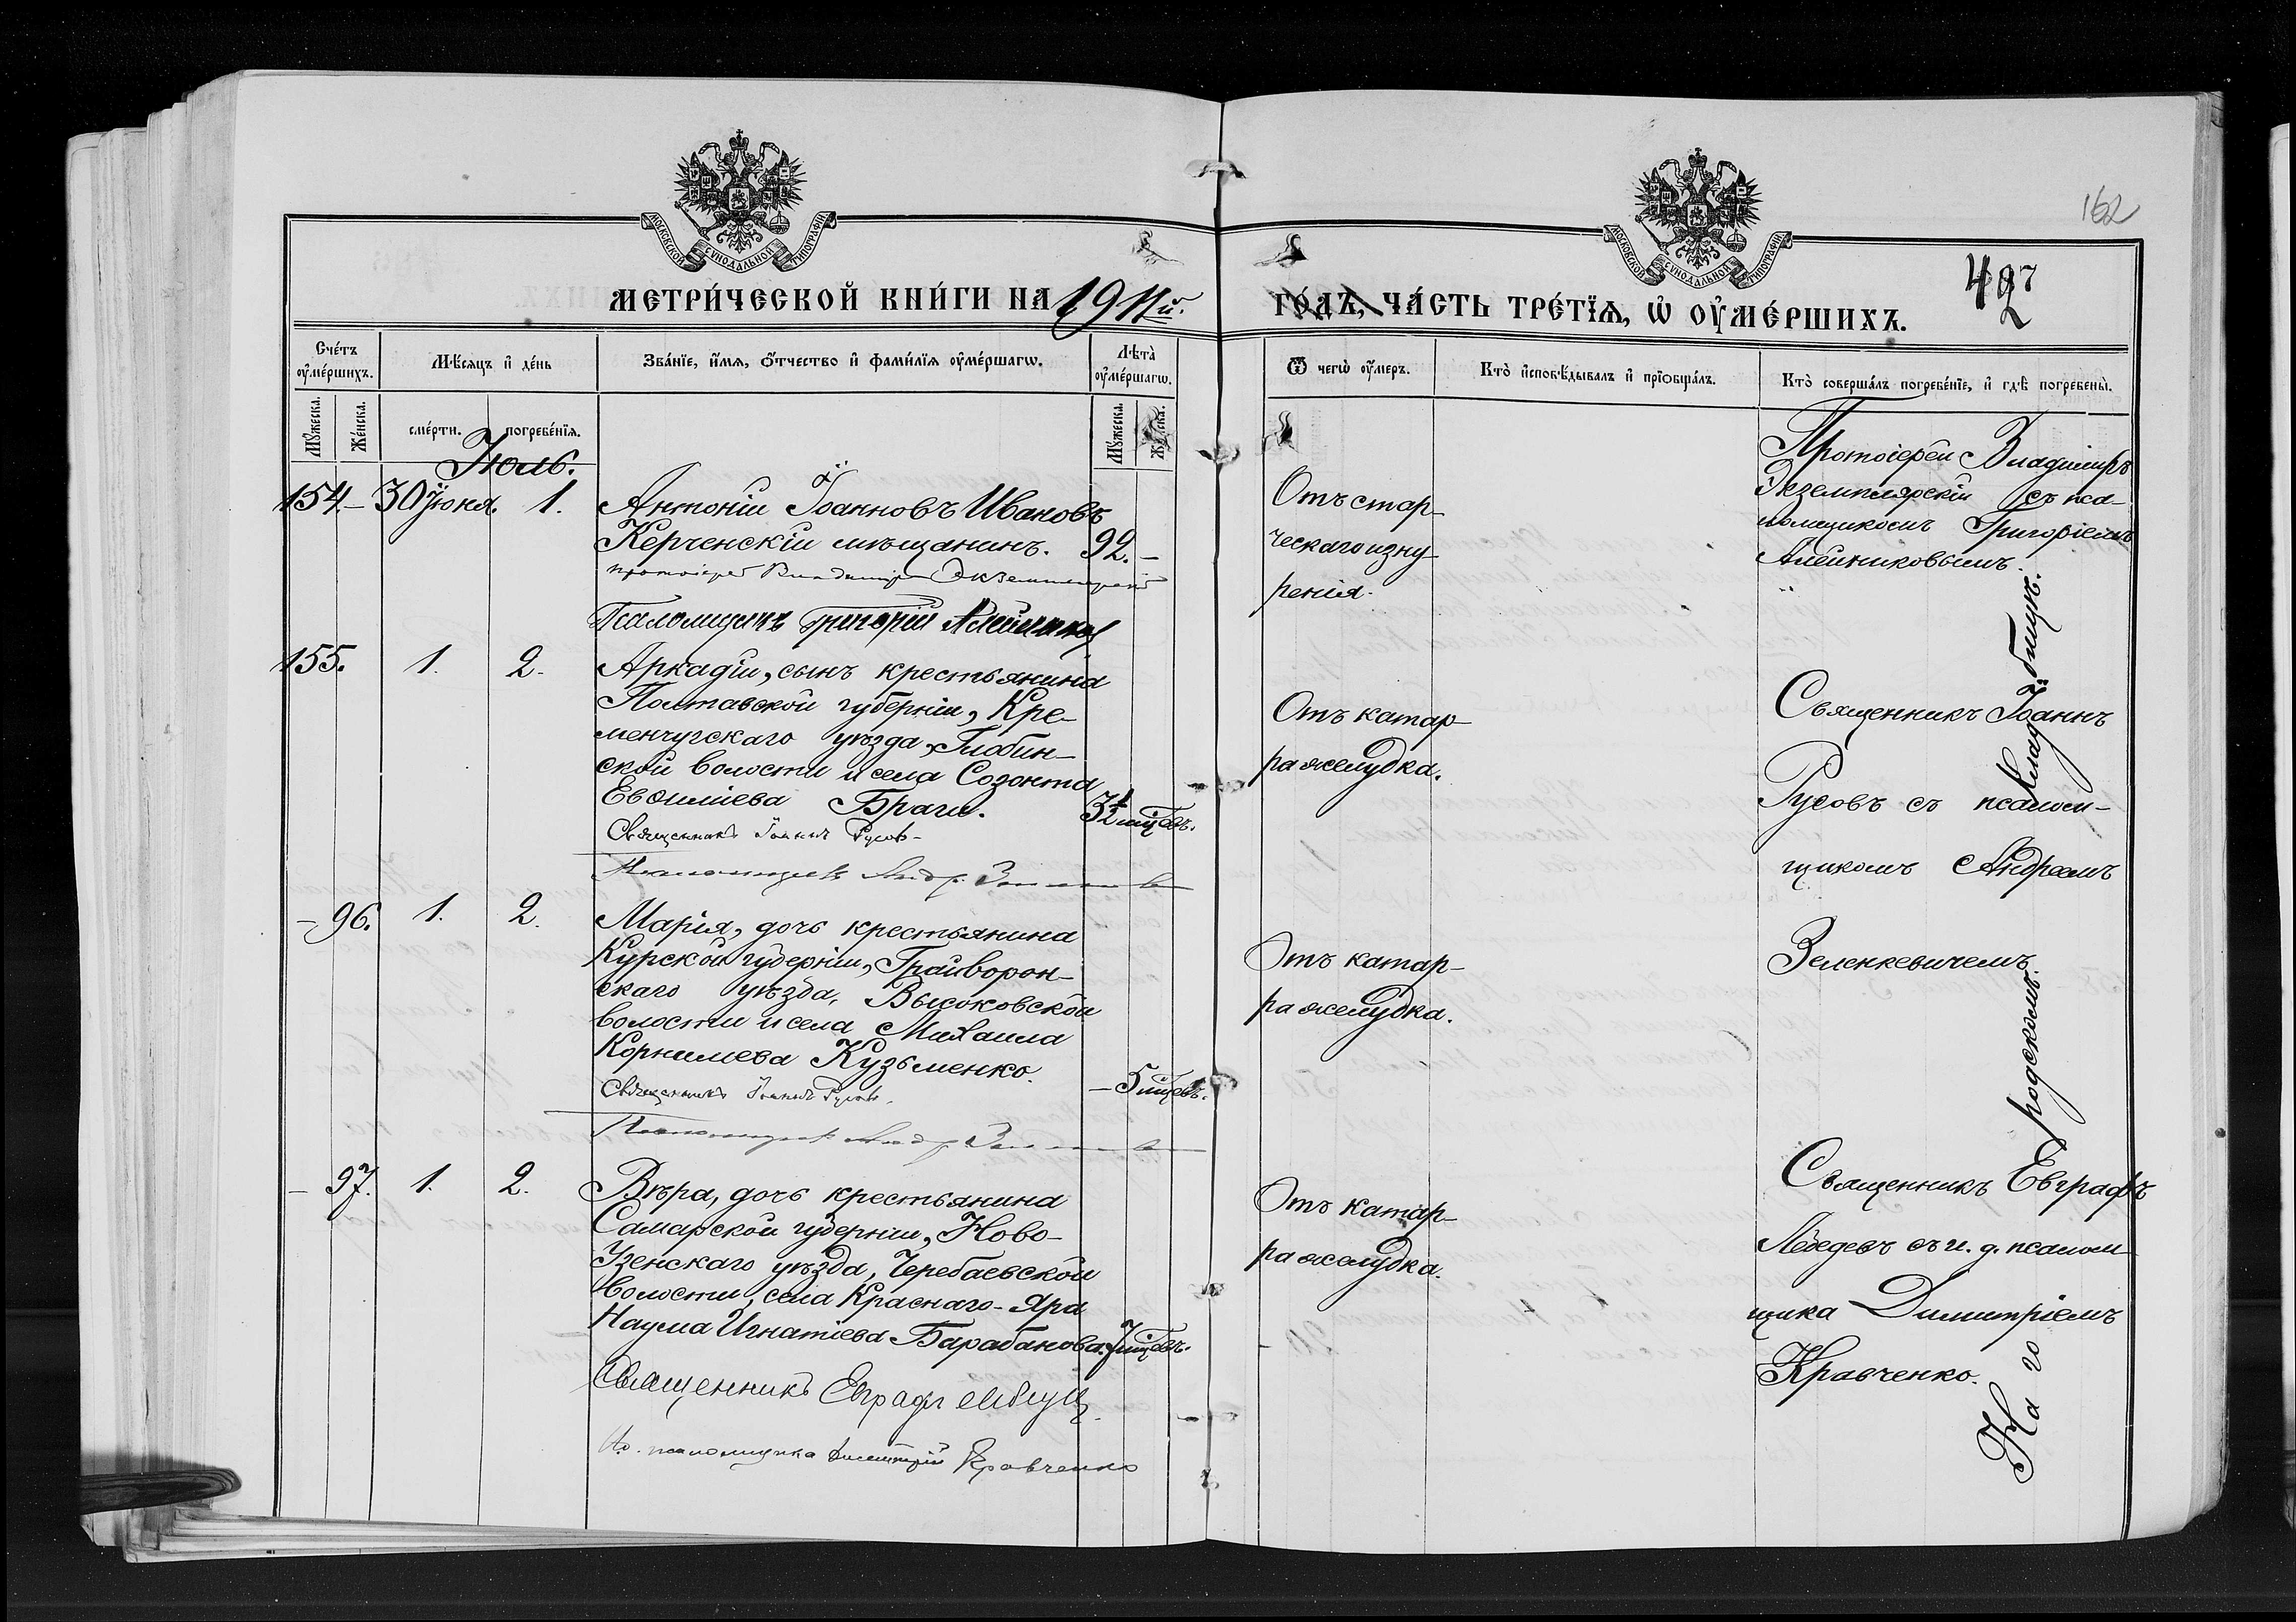 МОСКОВСКОЙ СѴНОДАЛЬНОЙ ТИПОГРАФІИ
МОСКОВСКОЙ СѴНОДАЛЬНОЙ ТИПОГРАФІИ
162
497
2
МЕТРИ́ЧЕСКОЙ КНИ́ГИ НА 1911й.
ГО́ДЪ, ЧА́СТЬ ТРЕ́ТЇѦ, Ѡ҆ ОУ҆МЕ́РШИХЪ.
Сче́тъ оу҆ме́ршихъ.
Мѣ́сяцъ и҆ де́нь
Зва́нїе, и҆́мя, ѻ҆́тчество и҆ фами́лїя оу҆ме́ршагѡ.
Лѣ̀та оу҆ме́ршагѡ.
Ѿ чегѡ̀ оу҆́меръ.
Кто̀ и҆сповѣ́дывалъ и҆ прїѻбща́лъ.
Кто̀ соверша́лъ погребе́нїе, и҆ гдѣ̀ погребены̀.
Мꙋ́жеска.
Же́нска.
сме́рти.
погребе́нїя.
Мꙋ́жеска.
Же́нска.
Іюль.
154.– 30 Іюня. 1.
Антоній Іоанновъ Ивановъ
Керченскій мѣщанинъ. 92.–
протоіерей Владиміръ Экземплярскій
Псаломщикъ Григорій Алейников
Отъ стар-
ческаго изну-
ренія.
Протоіерей Владиміръ
Экземплярскій съ пса-
ломщикомъ Григоріемъ
Алейниковымъ.
155. 1. 2.
Аркадій, сынъ крестьянина
Полтавской губерніи, Кре-
менчугскаго уѣзда, Глобин-
ской волости и села Созонта
Евѳиміева Браги. 3½ мѣцъ.
Священникъ Іоаннъ Русов
Псаломщикъ Андр.
Отъ катар-
ра желудка.
Священникъ Іоаннъ
Русовъ съ псалом-
щикомъ Андреемъ
Зеленкевичемъ.
– 96. 1. 2.
Марія, дочь крестьянина
Курской губерніи, Грайворон-
скаго уѣзда, Высоковской
волости и села Михаила
Корнилиева Кузьменко.
– 5 мцевъ.
Священникъ Іоаннъ Русов.
Псаломщикъ Андр.
Отъ катар-
ра желудка.
– 97. 1. 2.
Вѣра, дочь крестьянина
Самарской губерніи, Ново-
Узенскаго уѣзда, Черебаевской
волости, села Краснаго-Яра
Наума Игнатіева Барабанова. 7 мцевъ.
Священникъ Евграфъ Лебедевъ
И.о. псаломщика Димитрій Кравченко
Отъ катар-
ра желудка.
Священникъ Евграфъ
Лебедевъ съ и. д. псалом-
щика Димитріемъ
Кравченко.
На городскомъ кладбищѣ.